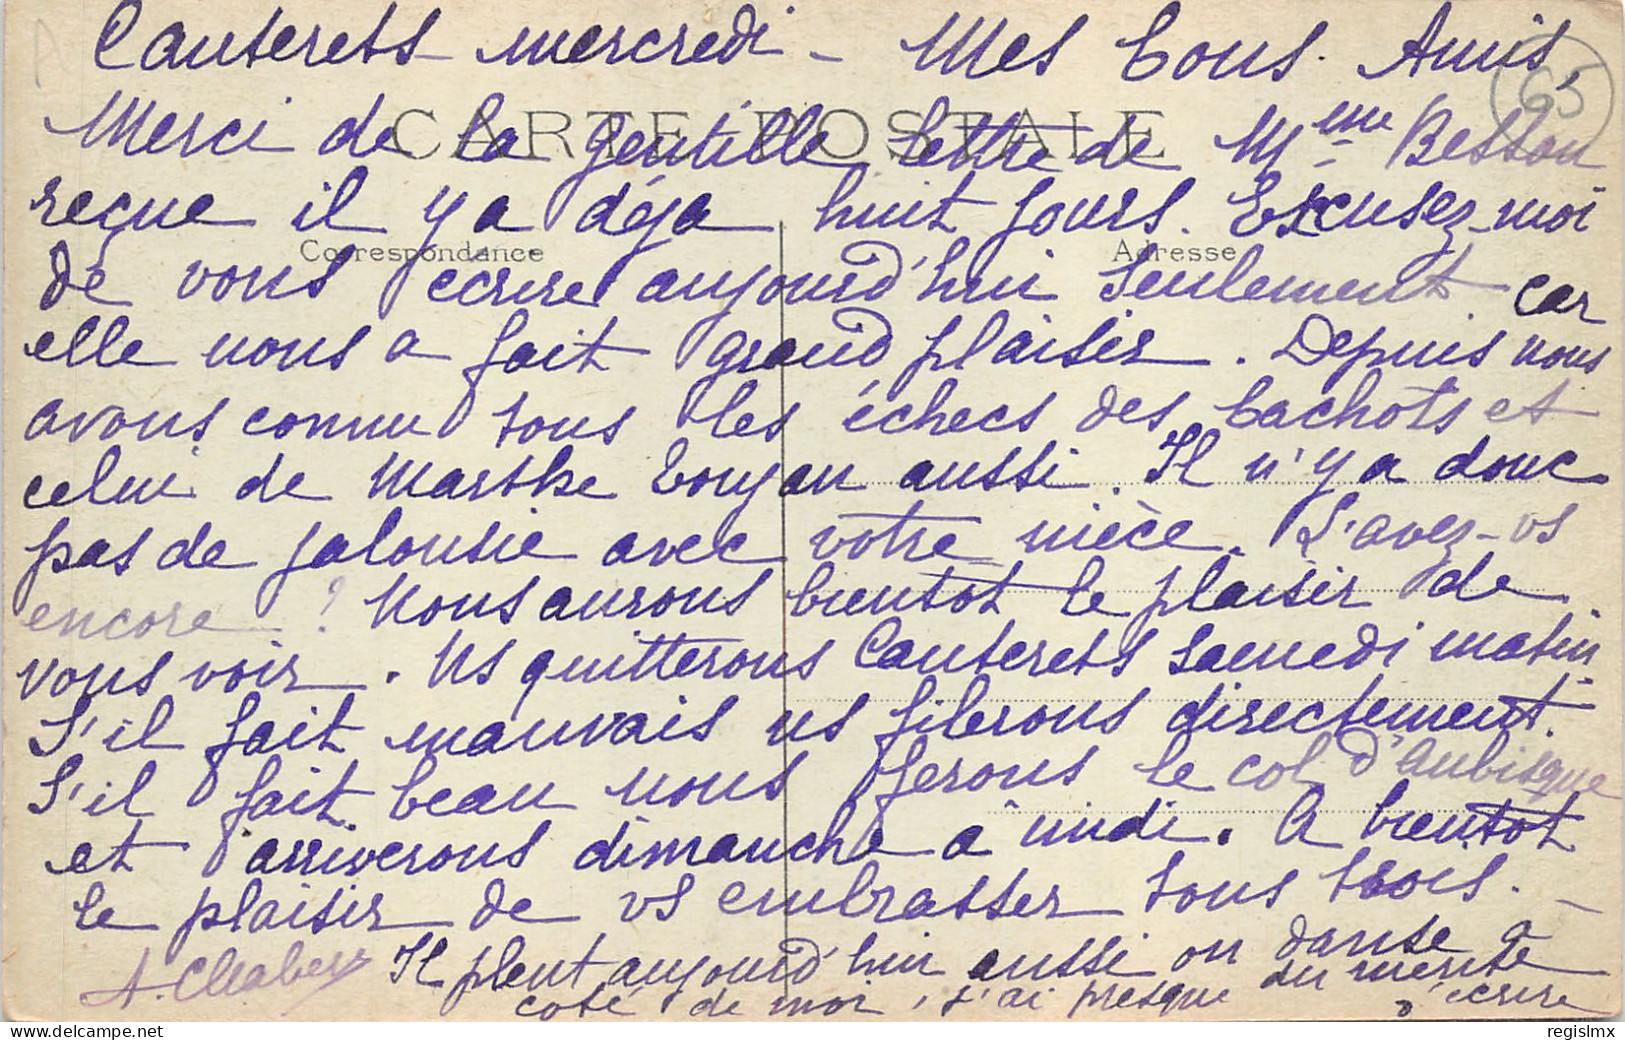 Cauterets mercredi - Mes bons Amis,
65
CARTE POSTALE
Merci de la gentille lettre de Mme Besson
reçue il y a déja huit jours. Excusez-moi
Correspondance
Adresse
de vous écrire aujourd'hui seulement car
elle nous a fait grand plaisir. Depuis nous
avons connu tous les échecs des bachots et
celui de Marthe aussi. Il n'y a donc
pas de jalousie avec votre nièce. L'avez-vs
encore ? Nous aurons bientôt le plaisir de
vous voir. Ns quitterons Cauterets samedi matin.
S'il fait mauvais ns filerons directement.
S'il fait beau nous ferons le col d'Aubisque
et arriverons dimanche à midi. A bientôt
le plaisir de vs embrasser tous trois. -
A. Il pleut aujourd'hui aussi on danse à
coté de moi, j'ai presque du mérite d'écrire
regislmx